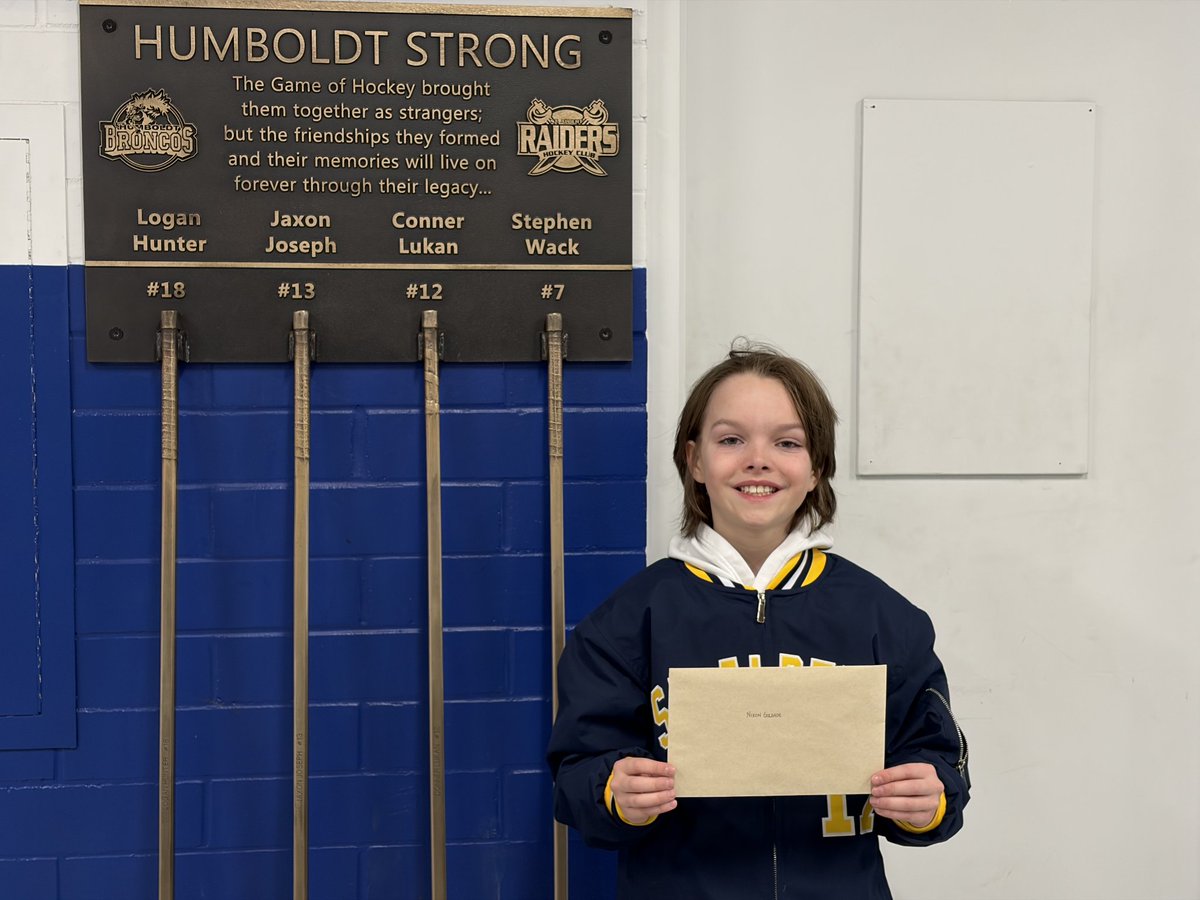 HUMBOLDT STRONG
The Game of Hockey brought
them together as strangers;
but the friendships they formed
and their memories will live on
forever through their legacy...
HUMBOLDT
BRONCOS
RAIDERS
HOCKEY CLUB
Logan Hunter
Jaxon Joseph
Conner Lukan
Stephen Wack
#18
#13
#12
#7
LOGAN HUNTER #18
JAXON JOSEPH #13
CONNER LUKAN #12